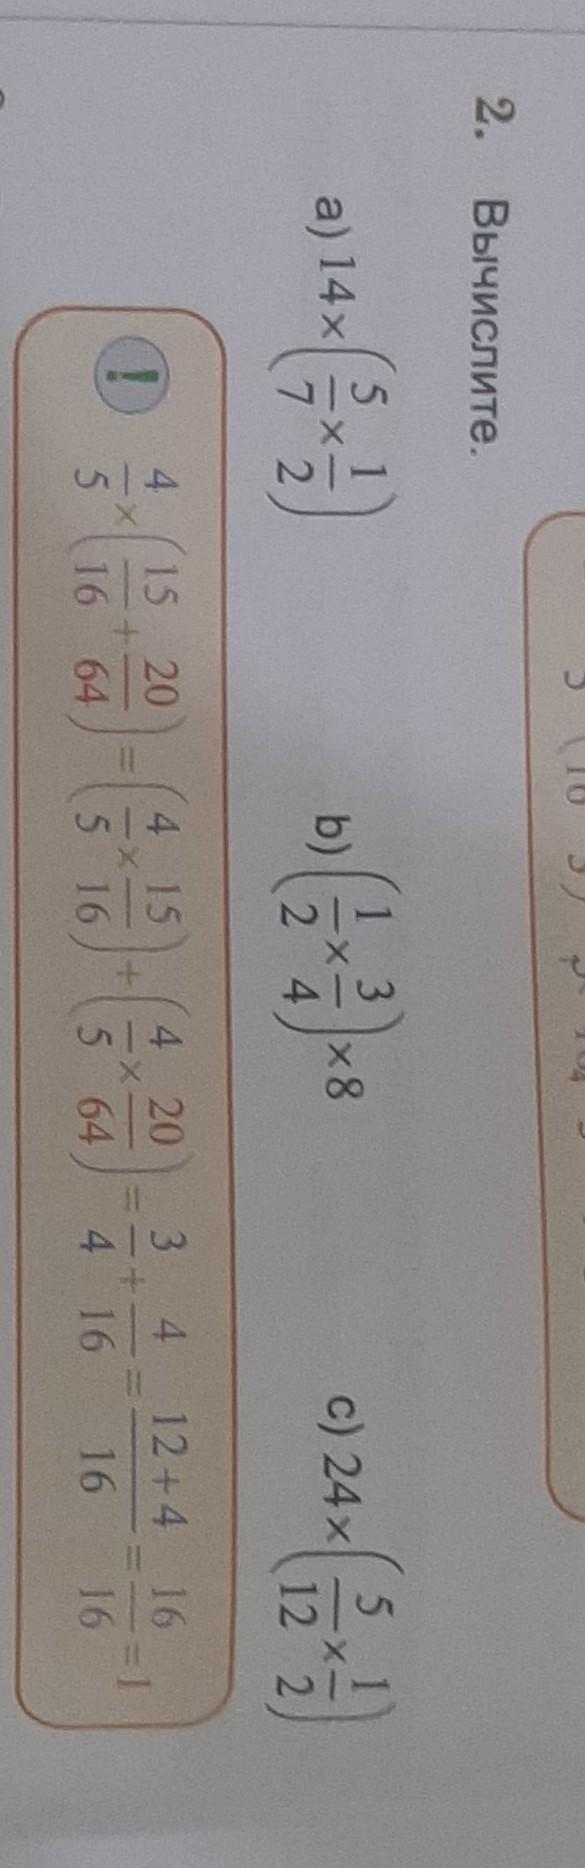 2. Вычислите.
a) 14 × (5/7 × 1/2) b) (1/2 × 3/4) × 8 c) 24 × (5/12 × 1/2)
! 4/5 × (15/16 + 20/64) = (4/5 × 15/16) + (4/5 × 20/64) = 3/4 + 4/16 = (12 + 4)/16 = 16/16 = 1